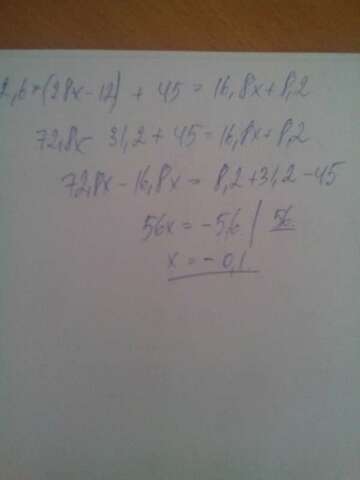 2,6*(28x-12) + 45 = 16,8x+8,2
72,8x- 31,2 + 45 = 16,8x+8,2
72,8x - 16,8x = 8,2+31,2 - 45
56x = -5,6 / 56
x = - 0,1